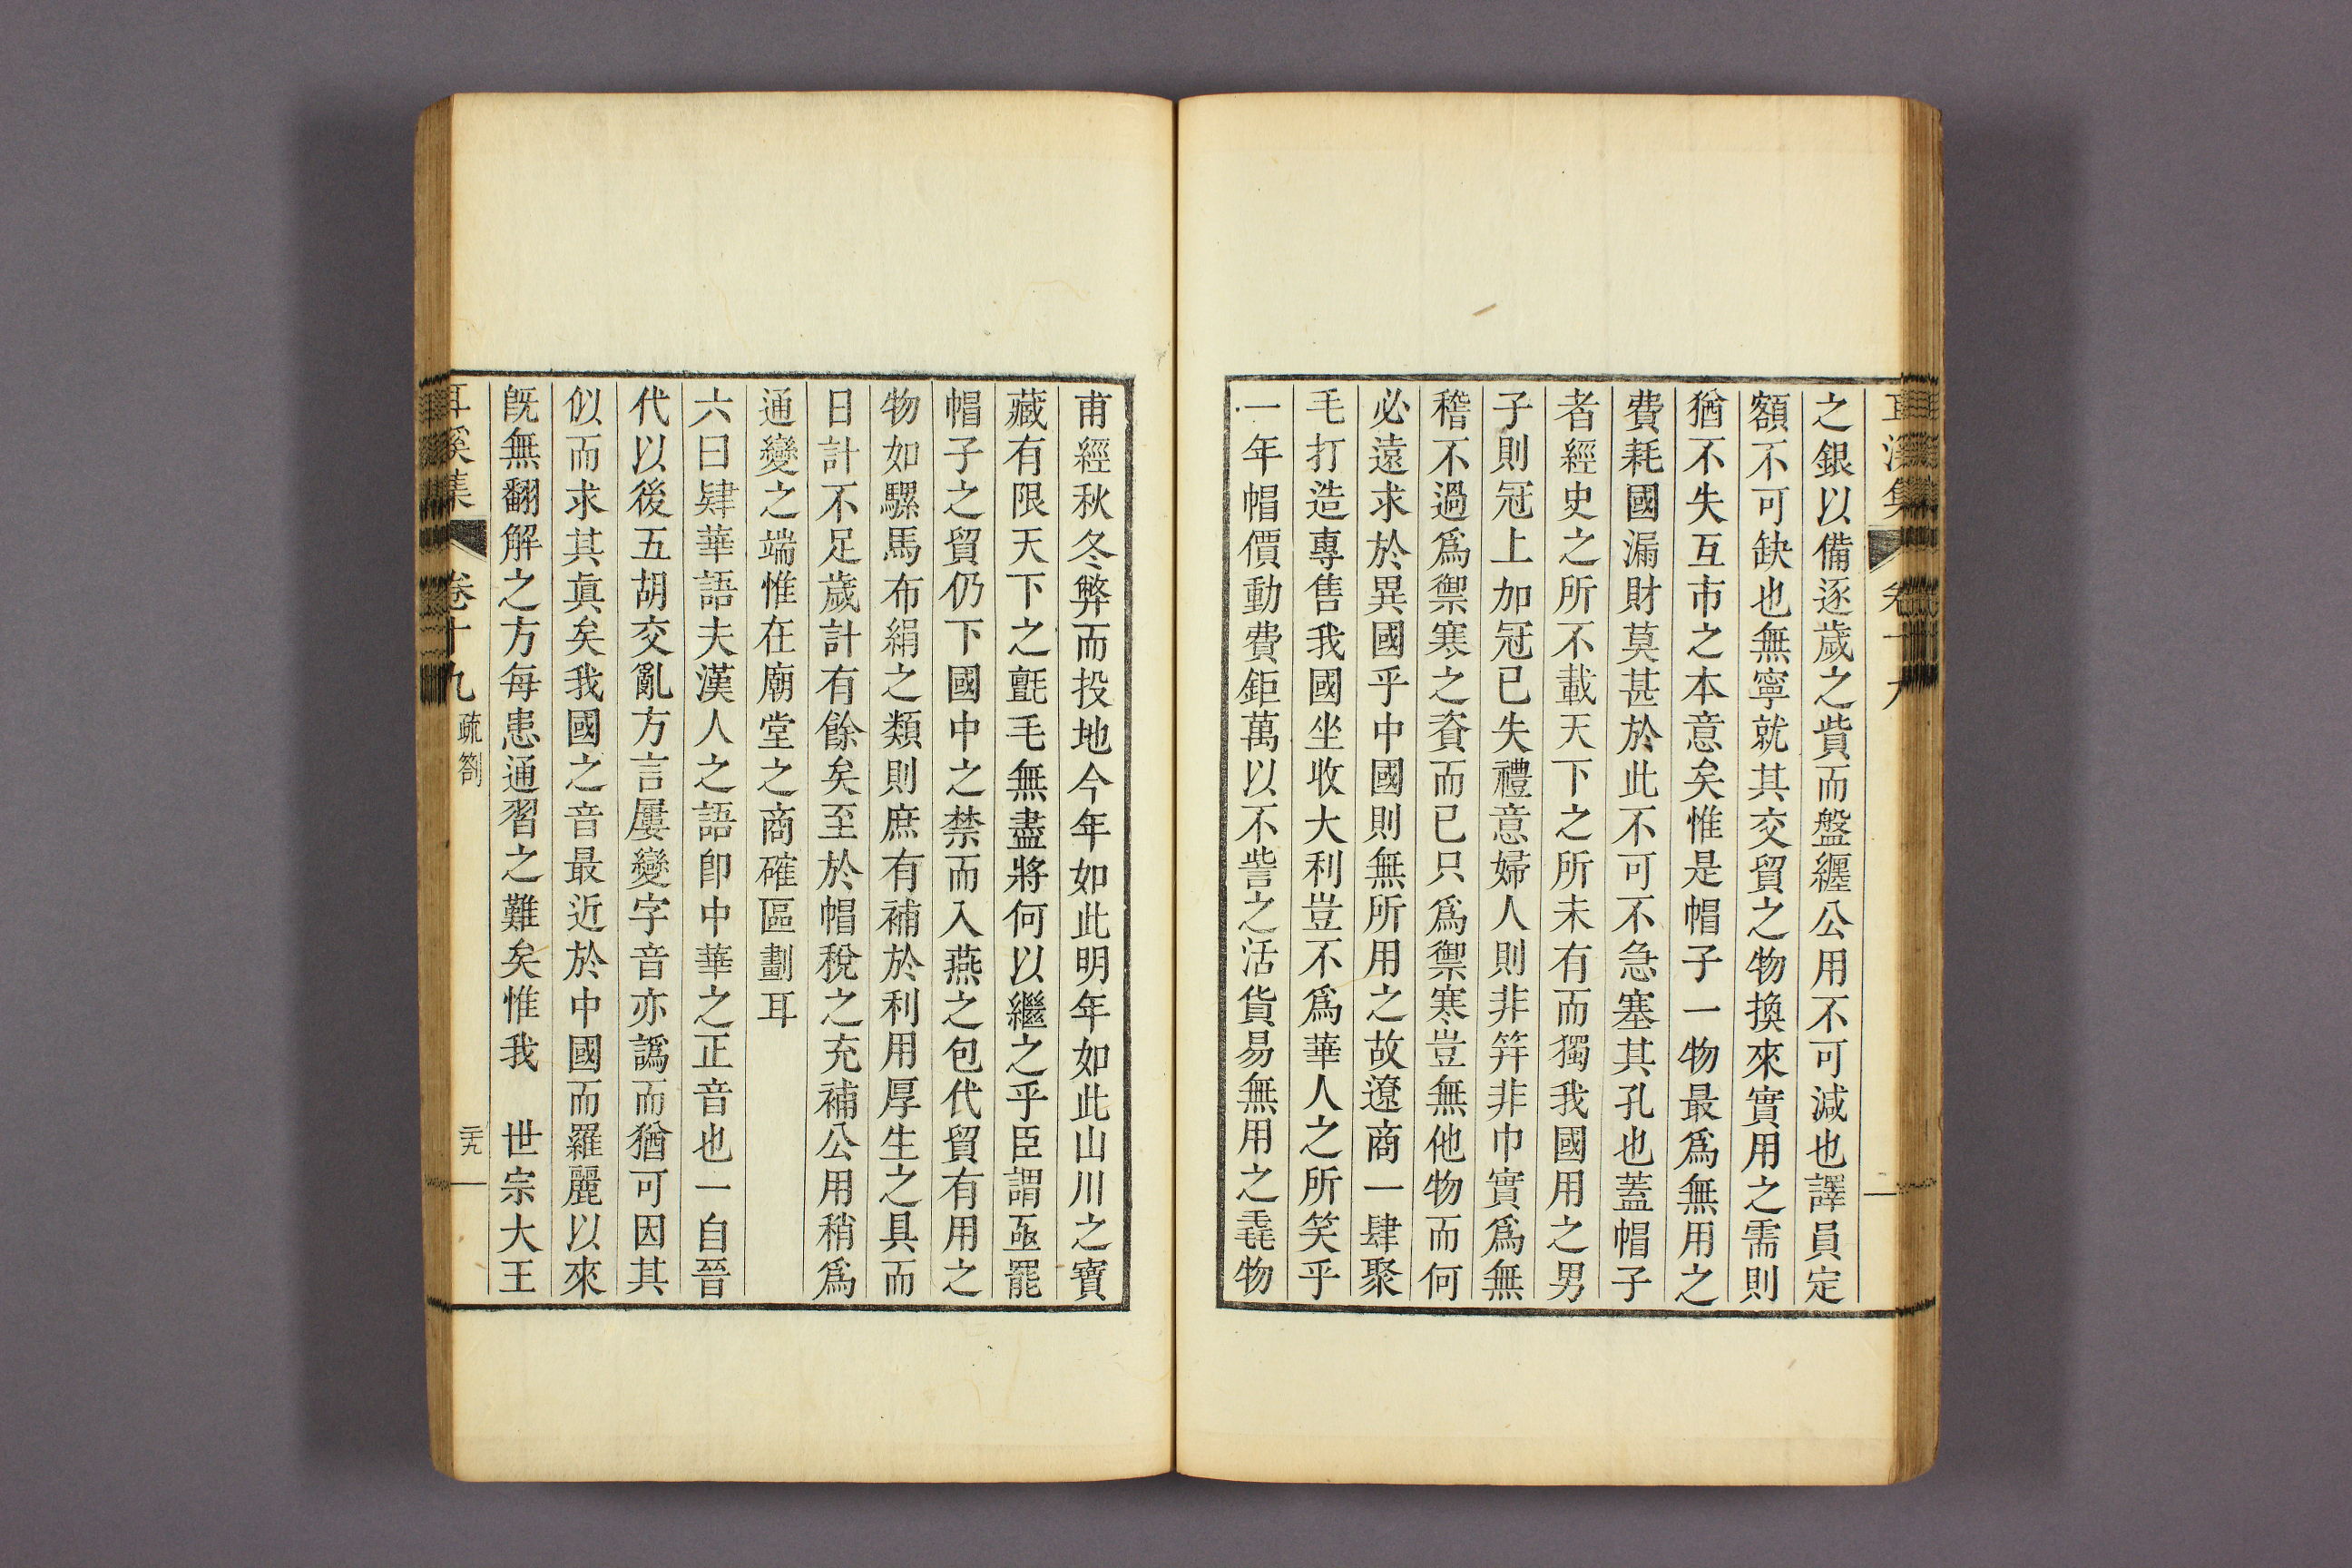 之銀以備逐歲之貲而盤纏公用不可減也譯員定
額不可缺也無寧就其交貿之物換來實用之需則
猶不失互市之本意矣惟是帽子一物最爲無用之
費耗國漏財莫甚於此不可不急塞其孔也蓋帽子
者經史之所不載天下之所未有而獨我國用之男
子則冠上加冠已失禮意婦人則非笄非巾實爲無
稽不過爲禦寒之資而已只爲禦寒豈無他物而何
必遠求於異國乎中國則無所用之故遼商一肆聚
毛打造專售我國坐收大利豈不爲華人之所笑乎
一年帽價動費鉅萬以不訾之活貨易無用之毳物
甫經秋冬弊而投地今年如此明年如此山川之寶
藏有限天下之氈毛無盡將何以繼之乎臣謂亟罷
帽子之貿仍下國中之禁而入燕之包代貿有用之
物如騾馬布絹之類則庶有補於利用厚生之具而
日計不足歲計有餘矣至於帽稅之充補公用稍爲
通變之端惟在廟堂之商確區劃耳
六曰肄華語夫漢人之語卽中華之正音也一自晉
代以後五胡交亂方言屢變字音亦譌而猶可因其
似而求其眞矣我國之音最近於中國而羅麗以來
旣無翻解之方每患通習之難矣惟我　世宗大王
耳溪集 卷十九 疏箚 二十九